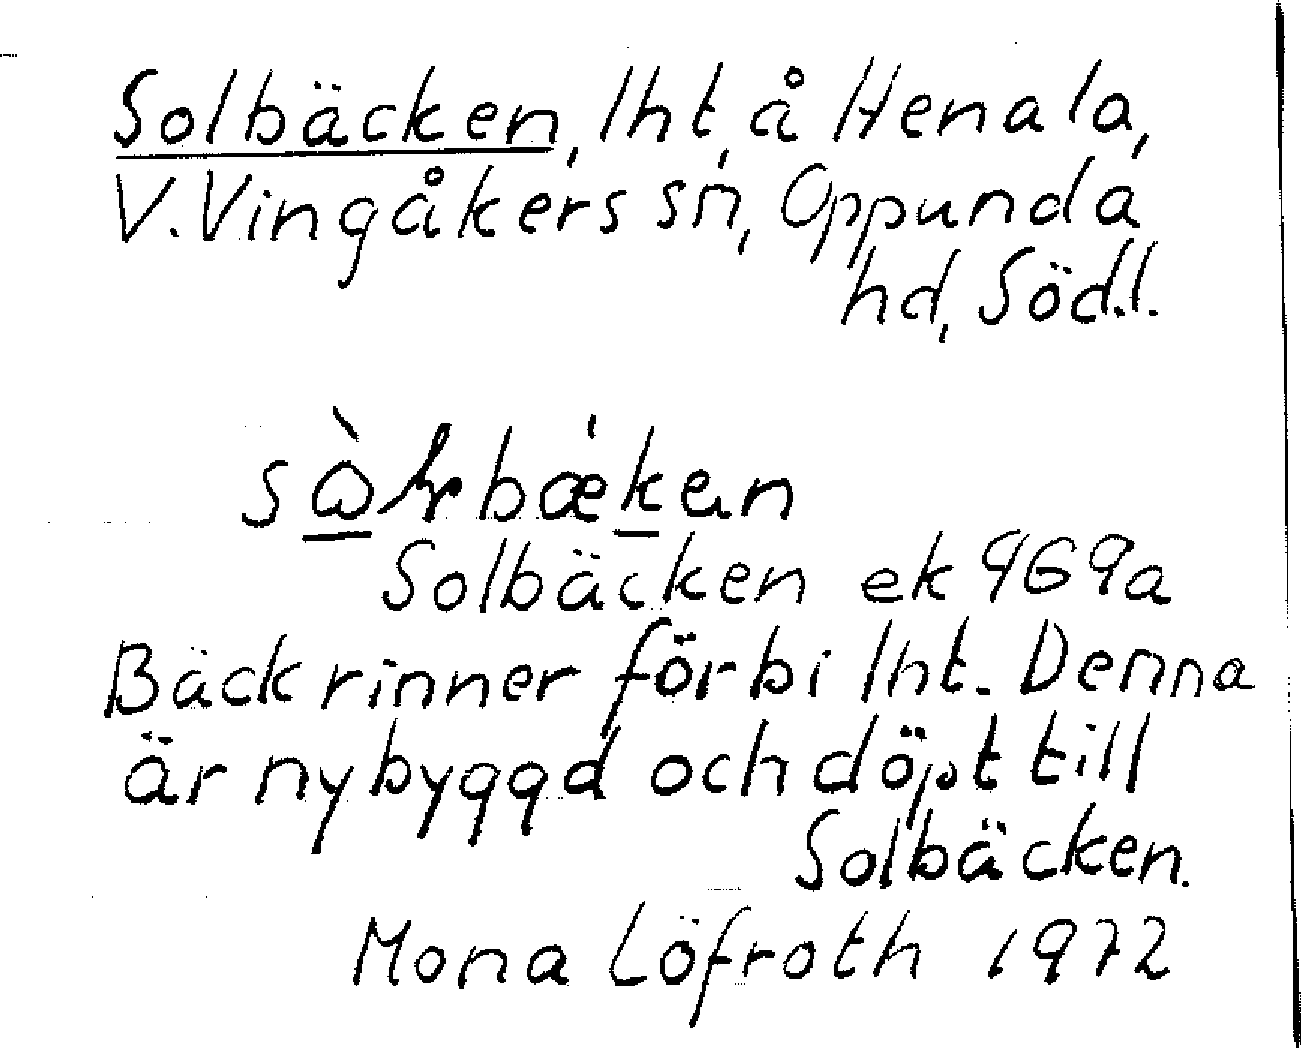 Solbäcken, lht, å Henala,
V. Vingåkers sn, Oppunda
hd, Södl.
Solbäcken ek 969a
Bäck rinner förbi lht. Denna
är nybyggd och döpt till
Solbäcken.
Mona Löfroth 1972